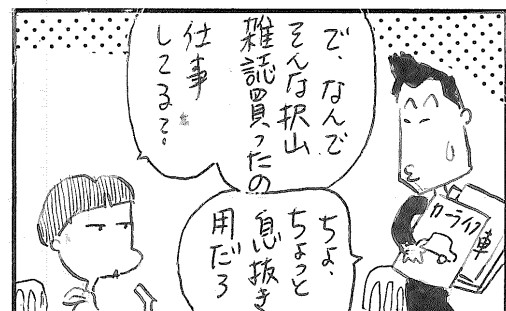 で、なんで
そんな沢山
雑誌買ったの
仕事
してる?
ちょ、
ちょっと
息抜き
用だろ
カーライフ
車